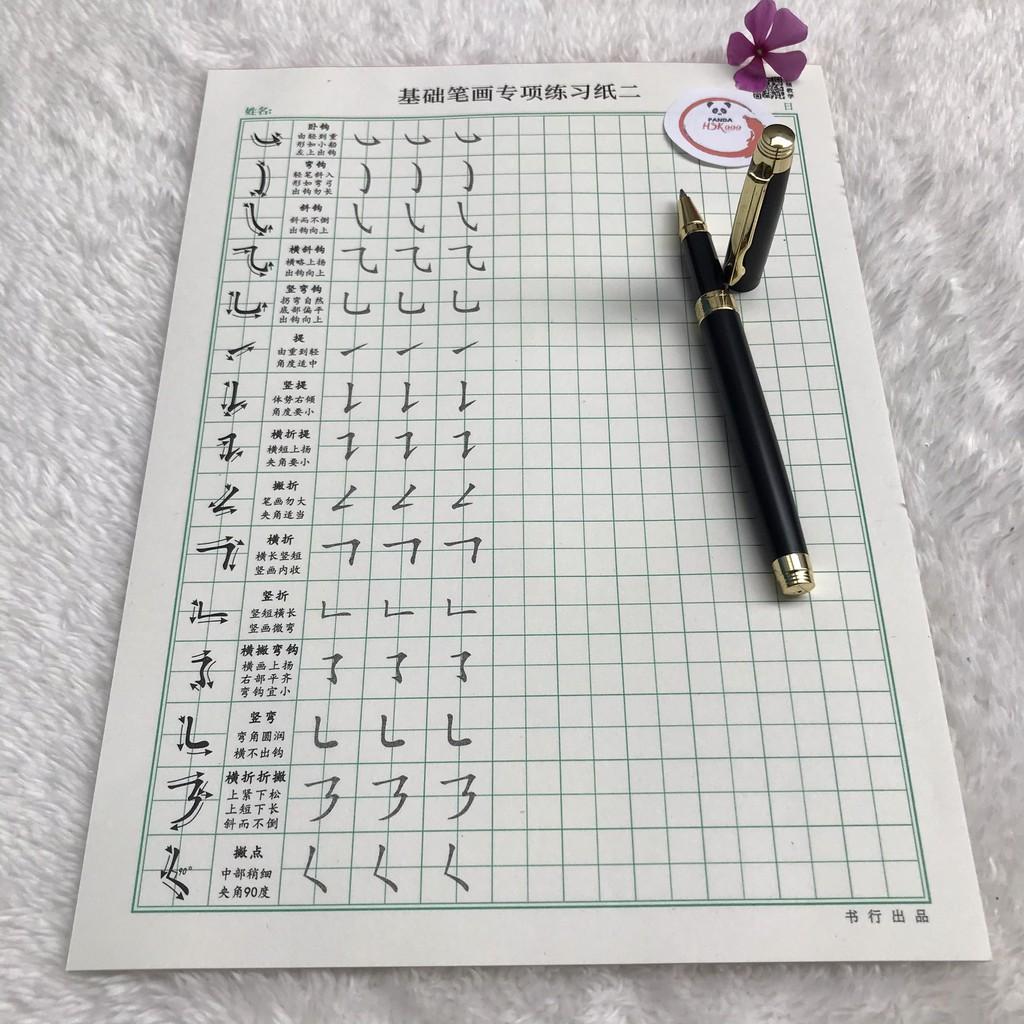 基础笔画专项练习纸二
姓名:
日
PANDA
HSK999
卧钩
由轻到重
形如小船
左上出钩
弯钩
轻笔斜入
形如弯弓
出钩勿长
斜钩
斜而不倒
出钩向上
横斜钩
横略上扬
出钩向上
竖弯钩
拐弯自然
底部偏平
出钩向上
提
由重到轻
角度适中
竖提
体势右倾
角度要小
横折提
横短上扬
夹角要小
撇折
笔画勿大
夹角适当
横折
横长竖短
竖画内收
竖折
竖短横长
竖画微弯
横撇弯钩
横画上扬
右部平齐
弯钩宜小
竖弯
弯角圆润
横不出钩
横折折撇
上紧下松
上短下长
斜而不倒
撇点
90°
中部稍细
夹角90度
书行出品